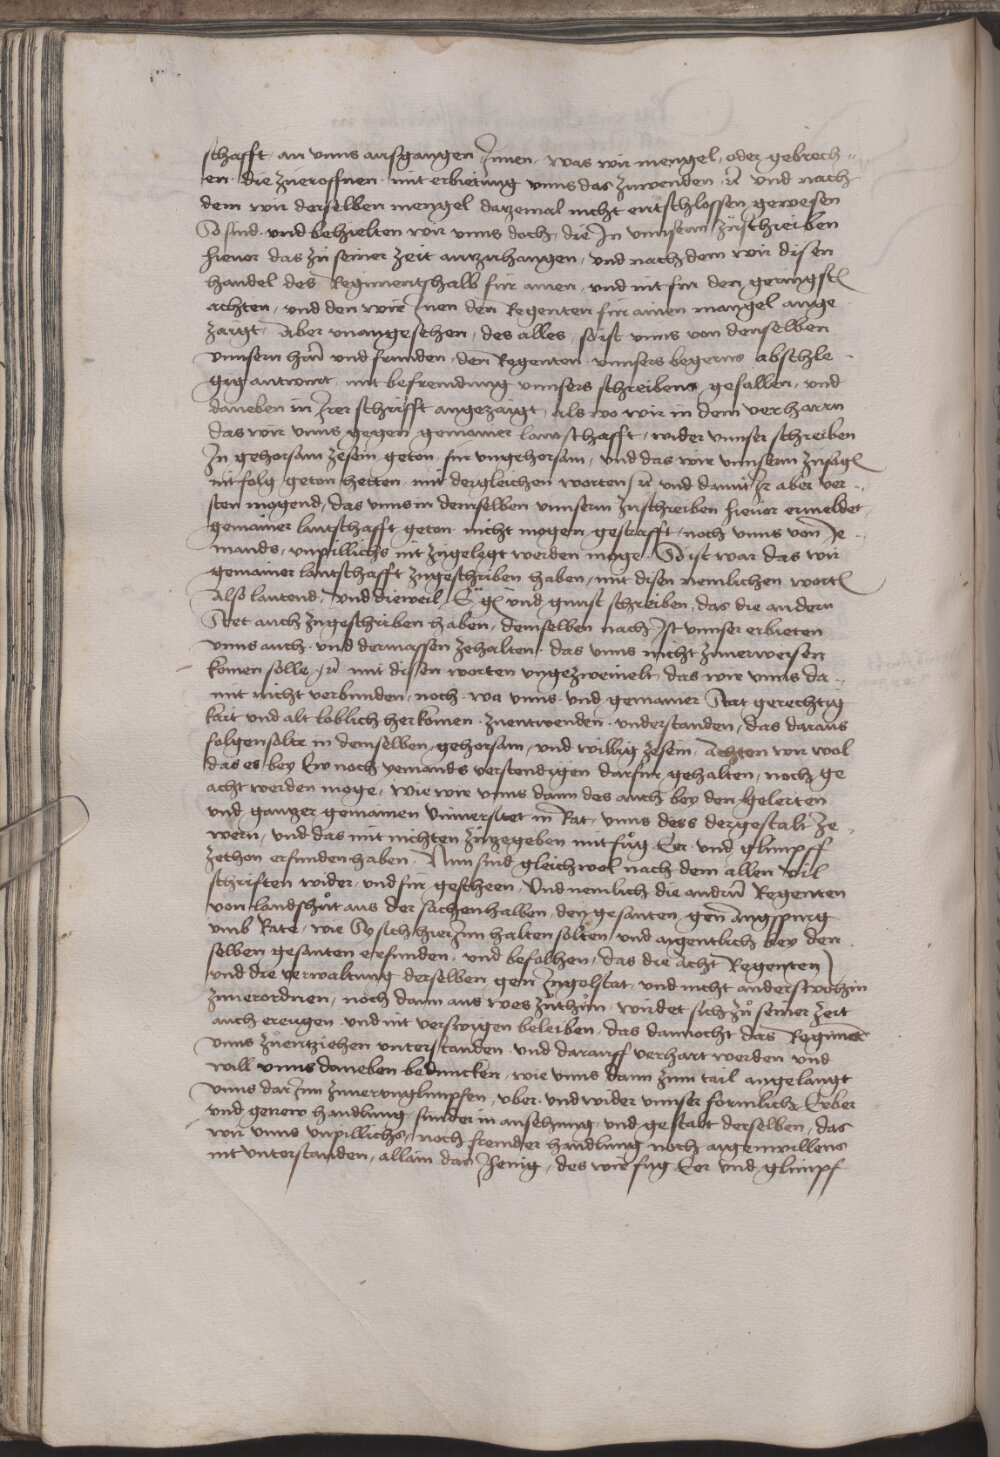 schafft an vnns ausgangen Innen, was wir mengel, oder gebrech„
en. die zueroffnen. mit erbietung vnns das zuwenden (et)c̃ vnd nach
dem wir derselben mengel datzemal nicht entschlossen gewesen
So sind. vnd behielten wir vnns doch, die In vnnserm zůschreiben
hieuor das zu seiner zeit anzuhangen, vnd nach dem wir disen
handel des Regimentshalb für ainen, vnd nit fur den geringstn̄
achten, vnd den wir Inen den Regenten für ainen mangel ange
zaigt, Aber vnangesehen, des alles, so ist vnns von denselben
vnnsern hr̄n vnd frunden, den Regenten vnnsers begerns abschle„
gig antwurt, mit befremdung vnnsers schreibens gefallen, vnd
daneben in Irer schrifft angezaigt, als wo wir in dem verharrn
das wir vnns gegen gemainer lantschafft, wider vnnser schreiben
In gehorsam zesein geton, fur vngehorsam, vnd das wir vnnserm zusagn̄
nit folg geton hetten, mit dergleichen worten (et)c̃ vnd damit Ir aber ver„
sten mogend, das vnns in demselben vnnserm zuschreiben hieuor ermeldet,
gemainer lantschafft geton. nicht mogen gestrafft, noch vnns von Je„
mands, vnpillichs nit zugelegt werden moge. So ist war das wir
gemainer lantschafft zugeschriben haben, mit disen nemlichen wortn̄
Also lautend, vnd dieweil E g vnd gunst schreiben, das die andern
Stet auch zugeschriben haben, demselben nach Ist vnnser erbieten
vnns auch. vnd dermassen zehalten. das vnns nicht zuuerweisen
komen solle (et)c̃ mit disen worten vngezweiuelt, das wir vnns da„
mit nicht verbunden, noch. wa vnns vnd gemainer Stat gerechtig
kait vnd alt loblich herkomen. zuentwenden. vnderstanden, das daraus
folgen solte in demselben, gehorsam, vnd willig zesein, Achten wir wol
das es bey Ew noch yemands verstendigen darfur gehalten, noch ge
acht werden moge, wie wir vnns dann des auch bey den gelerten
vnd gantzer gemainen Vniuersitet in Rat, vnns dess dergestalt ze„
wern, vnd das mit nichten zuzegeben mit fůg Eer vnd glimpff
zethon erfunden haben. Nun sind gleichwol nach dem allen vil
schrifften wider, vnd für gescheen, Vnd nemlich die andern̄ Regenten
von Landshůt aus der sachenhalben, den gesanten gen Augspurg
vmb Rate, wie Sy sich hierInn halten solten, vnd aigentlich bey den
selben gesanten erfunden, vnd befolhen, das die acht Regenten
vnd die verwaltung derselben, gen Ingelstat vnd nicht anderswohin
zuuerordnen, noch dann aus wes zůthun, wirdet sich zů seiner zeit
auch ereugen vnd nit verswigen beleiben, das dannocht das Regiment
vnns zůentziehen vnterstanden vnd darauff verhart werden vnd
will vnns daneben beduncken, wie vnns dann zum tail angelangt
vnns darInn zuuerunglimpfen, vber. vnd wider vnnser formlich Erber
vnd getrew handlung, sunder in ansehung vnd gestalt derselben, das
wir vnns vnpillichs, noch fremder handlung noch aigenwillens
nit vnterstanden, allain das Jhenig, des wir fug Eer vnd glimpf